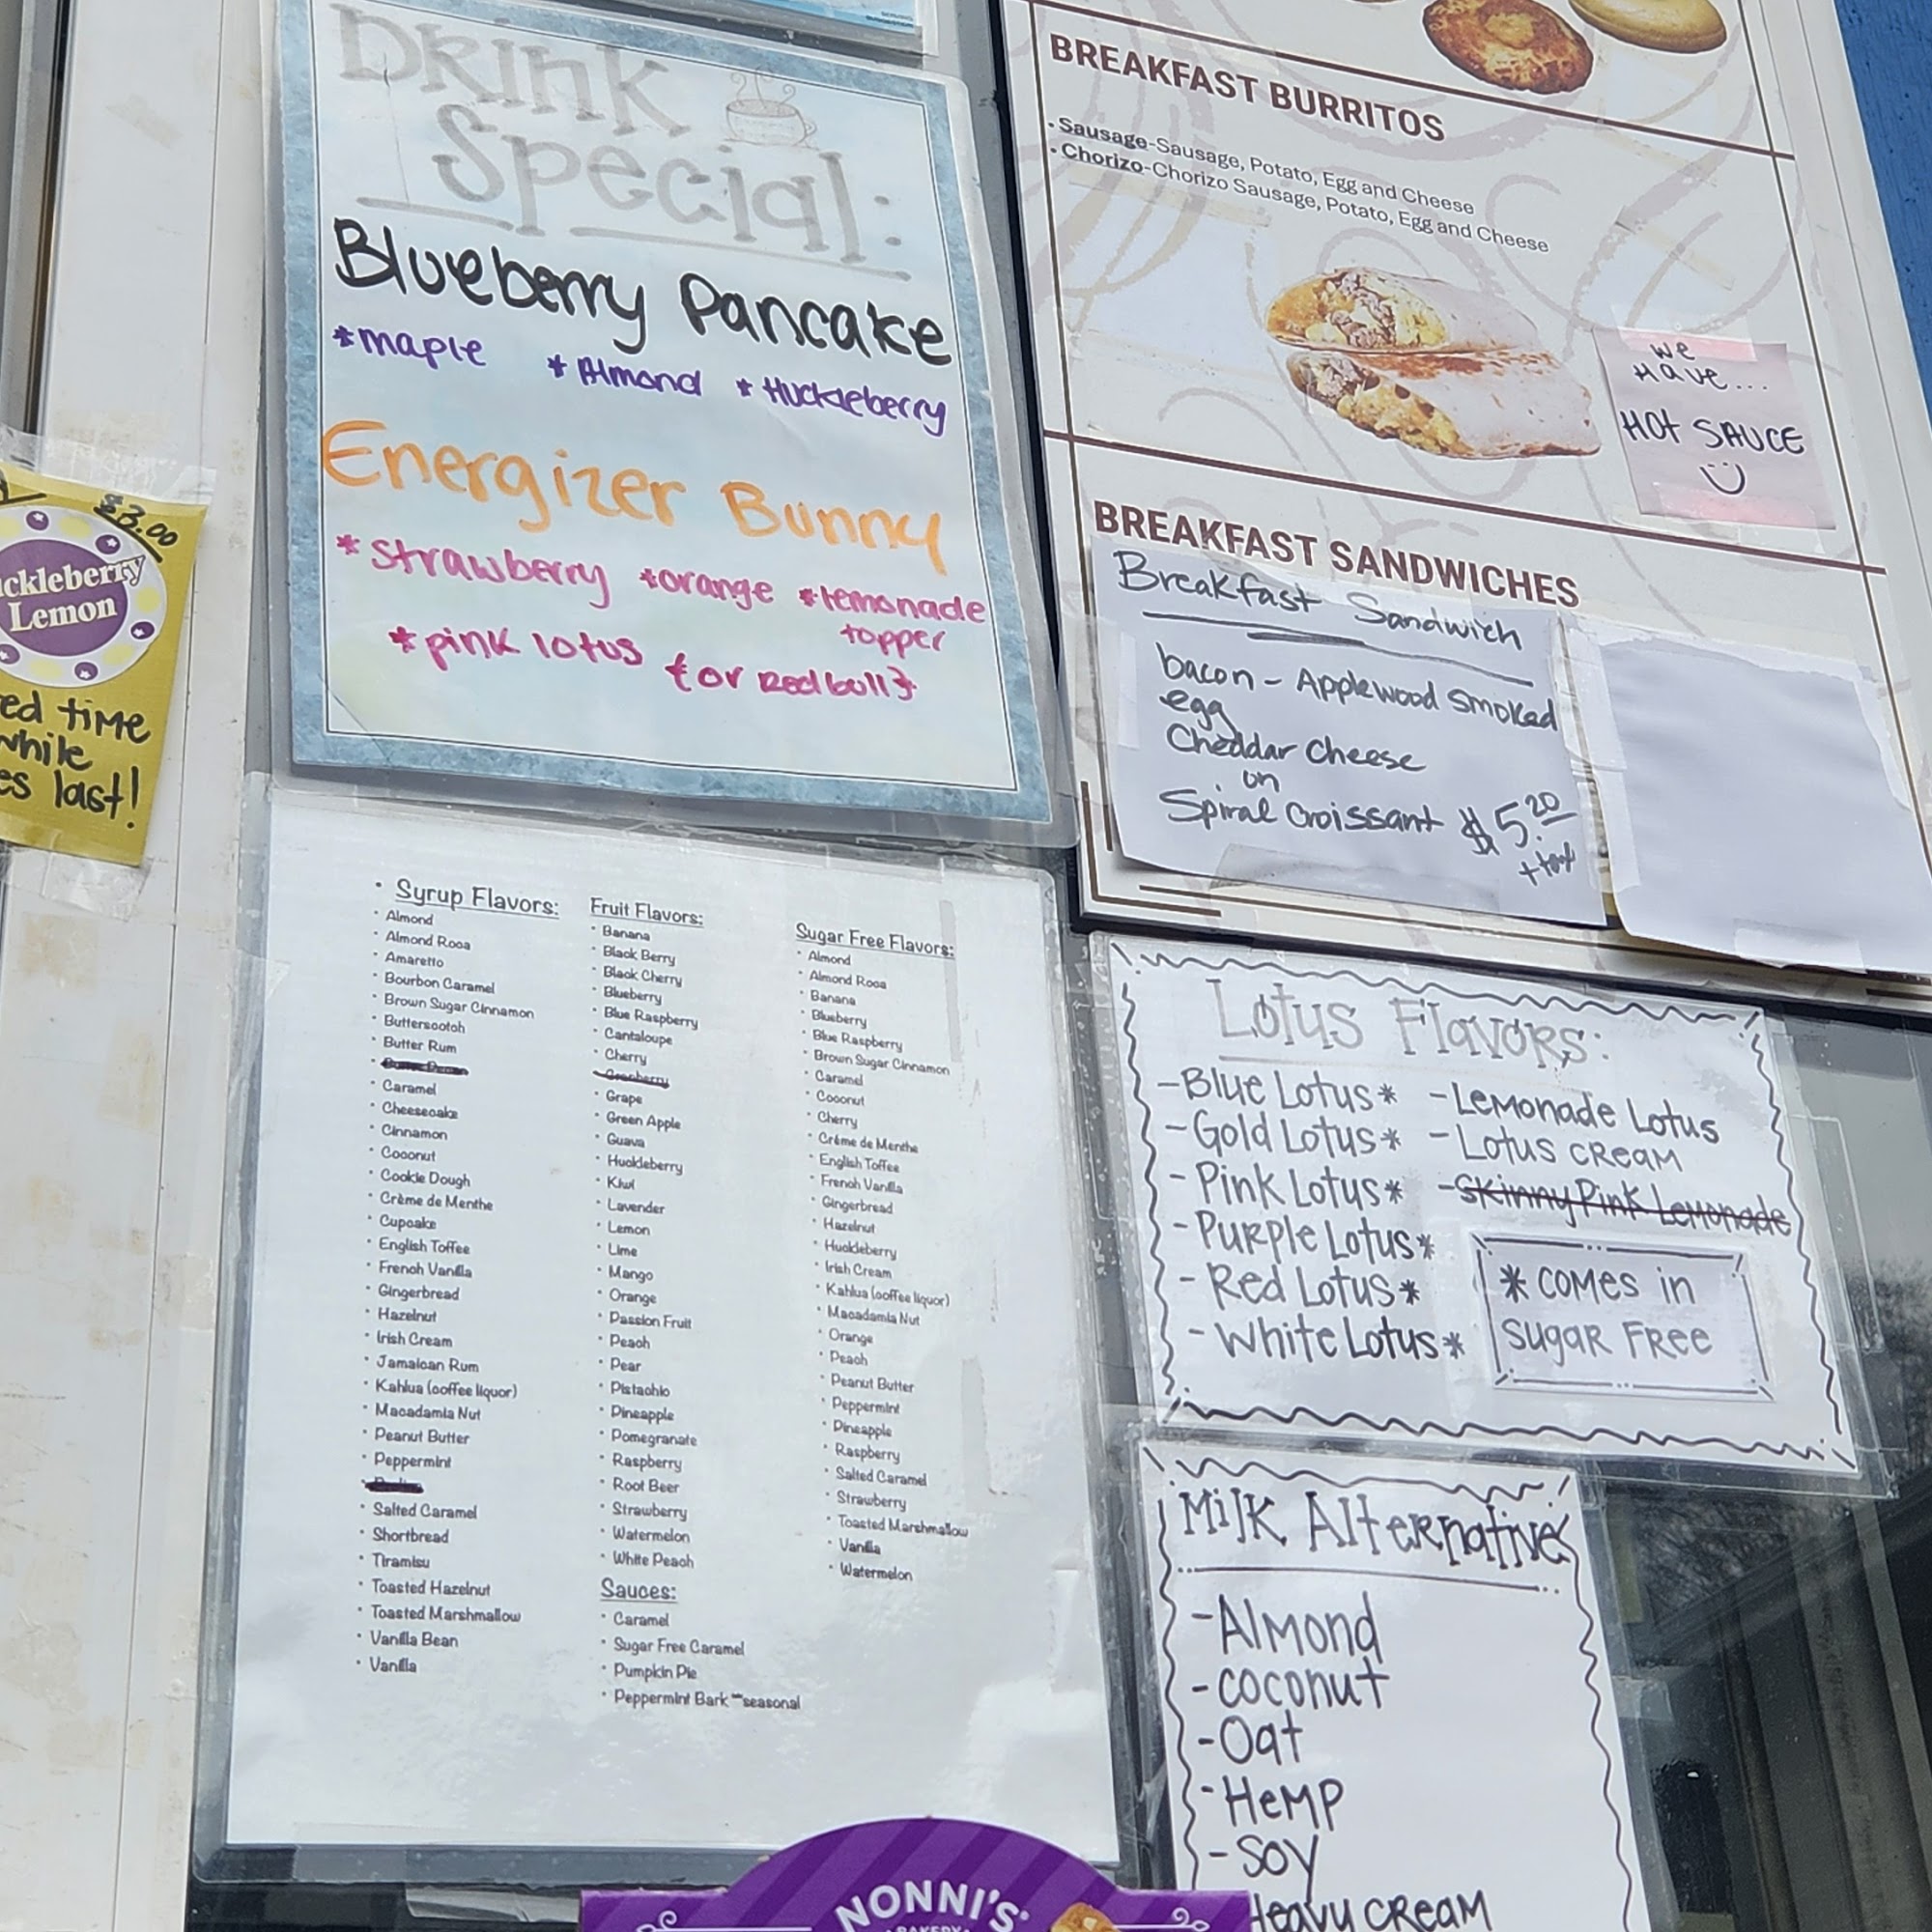 Drink
Special:
Blueberry Pancake
*maple *Almond *Huckleberry
Energizer Bunny
*strawberry *orange *lemonade
topper
*pink lotus {or Red bull}
$3.00
ckleberry
Lemon
ed time
while
es last!
BREAKFAST BURRITOS
• Sausage-Sausage, Potato, Egg and Cheese
• Chorizo-Chorizo Sausage, Potato, Egg and Cheese
we
Have...
HOT SAUCE
BREAKFAST SANDWICHES
Breakfast Sandwich
bacon - Applewood Smoked
egg
Cheddar Cheese
on
Spiral Croissant $5.20
+tax
• Syrup Flavors:
• Almond
• Almond Roca
• Amaretto
• Bourbon Caramel
• Brown Sugar Cinnamon
• Butterscotch
• Butter Rum
• Caramel
• Cheesecake
• Cinnamon
• Coconut
• Cookie Dough
• Crème de Menthe
• Cupcake
• English Toffee
• French Vanilla
• Gingerbread
• Hazelnut
• Irish Cream
• Jamaican Rum
• Kahlua (coffee liquor)
• Macadamia Nut
• Peanut Butter
• Peppermint
• Salted Caramel
• Shortbread
• Tiramisu
• Toasted Hazelnut
• Toasted Marshmallow
• Vanilla Bean
• Vanilla
Fruit Flavors:
• Banana
• Black Berry
• Black Cherry
• Blueberry
• Blue Raspberry
• Cantaloupe
• Cherry
• Cranberry
• Grape
• Green Apple
• Guava
• Huckleberry
• Kiwi
• Lavender
• Lemon
• Lime
• Mango
• Orange
• Passion Fruit
• Peach
• Pear
• Pistachio
• Pineapple
• Pomegranate
• Raspberry
• Root Beer
• Strawberry
• Watermelon
• White Peach
Sauces:
• Caramel
• Sugar Free Caramel
• Pumpkin Pie
• Peppermint Bark **seasonal
Sugar Free Flavors:
• Almond
• Almond Roca
• Banana
• Blueberry
• Blue Raspberry
• Brown Sugar Cinnamon
• Caramel
• Coconut
• Cherry
• Créme de Menthe
• English Toffee
• French Vanilla
• Gingerbread
• Hazelnut
• Huckleberry
• Irish Cream
• Kahlua (coffee liquor)
• Macadamia Nut
• Orange
• Peach
• Peanut Butter
• Peppermint
• Pineapple
• Raspberry
• Salted Caramel
• Strawberry
• Toasted Marshmallow
• Vanilla
• Watermelon
Lotus Flavors:
- Blue Lotus*
- Gold Lotus*
- Pink Lotus*
- Purple Lotus*
- Red Lotus*
- White Lotus*
- Lemonade Lotus
- Lotus Cream
- Skinny Pink Lemonade
* comes in
Sugar Free
Milk Alternatives
- Almond
- Coconut
- Oat
- Hemp
- Soy
Heavy Cream
NONNI'S
BAKERY